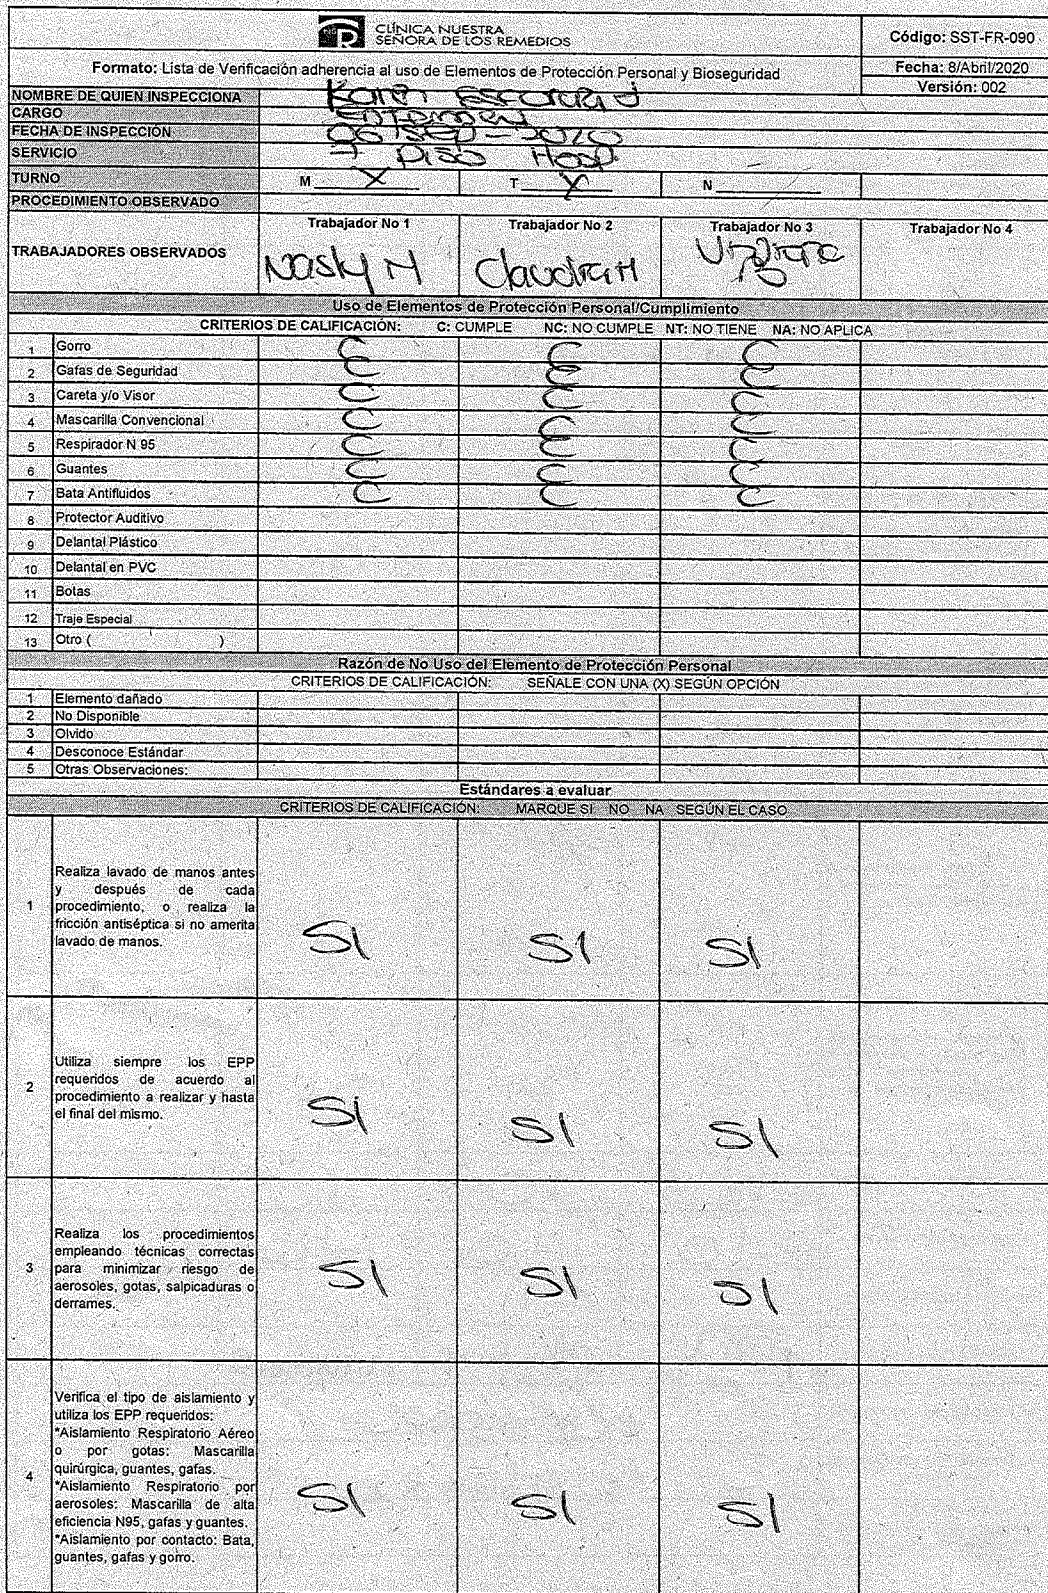 CLÍNICA NUESTRA
SEÑORA DE LOS REMEDIOS
Código: SST-FR-090
Formato: Lista de Verificación adherencia al uso de Elementos de Protección Personal y Bioseguridad
Fecha: 8/Abril/2020
Versión: 002
NOMBRE DE QUIEN INSPECCIONA Karen
CARGO
FECHA DE INSPECCIÓN 06 SEP - 2020
SERVICIO 7 PISO Hosp
TURNO M X T X N
PROCEDIMIENTO OBSERVADO
TRABAJADORES OBSERVADOS
Trabajador No 1 Trabajador No 2 Trabajador No 3 Trabajador No 4
Nasly M Claudia M
Uso de Elementos de Protección Personal/Cumplimiento
CRITERIOS DE CALIFICACIÓN: C: CUMPLE NC: NO CUMPLE NT: NO TIENE NA: NO APLICA
1 Gorro C C C
2 Gafas de Seguridad C C C
3 Careta y/o Visor C C C
4 Mascarilla Convencional C C C
5 Respirador N 95 C C C
6 Guantes C C C
7 Bata Antifluidos C C C
8 Protector Auditivo
9 Delantal Plástico
10 Delantal en PVC
11 Botas
12 Traje Especial
13 Otro ( )
Razón de No Uso del Elemento de Protección Personal
CRITERIOS DE CALIFICACIÓN: SEÑALE CON UNA (X) SEGÚN OPCIÓN
1 Elemento dañado
2 No Disponible
3 Olvido
4 Desconoce Estándar
5 Otras Observaciones:
Estándares a evaluar
CRITERIOS DE CALIFICACIÓN: MARQUE SI NO NA SEGÚN EL CASO
1
Realiza lavado de manos antes
y después de cada
procedimiento, o realiza la
fricción antiséptica si no amerita
lavado de manos.
SI SI SI
2
Utiliza siempre los EPP
requeridos de acuerdo al
procedimiento a realizar y hasta
el final del mismo.
SI SI SI
3
Realiza los procedimientos
empleando técnicas correctas
para minimizar riesgo de
aerosoles, gotas, salpicaduras o
derrames.
SI SI SI
4
Verifica el tipo de aislamiento y
utiliza los EPP requeridos:
*Aislamiento Respiratorio Aéreo
o por gotas: Mascarilla
quirúrgica, guantes, gafas.
*Aislamiento Respiratorio por
aerosoles: Mascarilla de alta
eficiencia N95, gafas y guantes.
*Aislamiento por contacto: Bata,
guantes, gafas y gorro.
SI SI SI